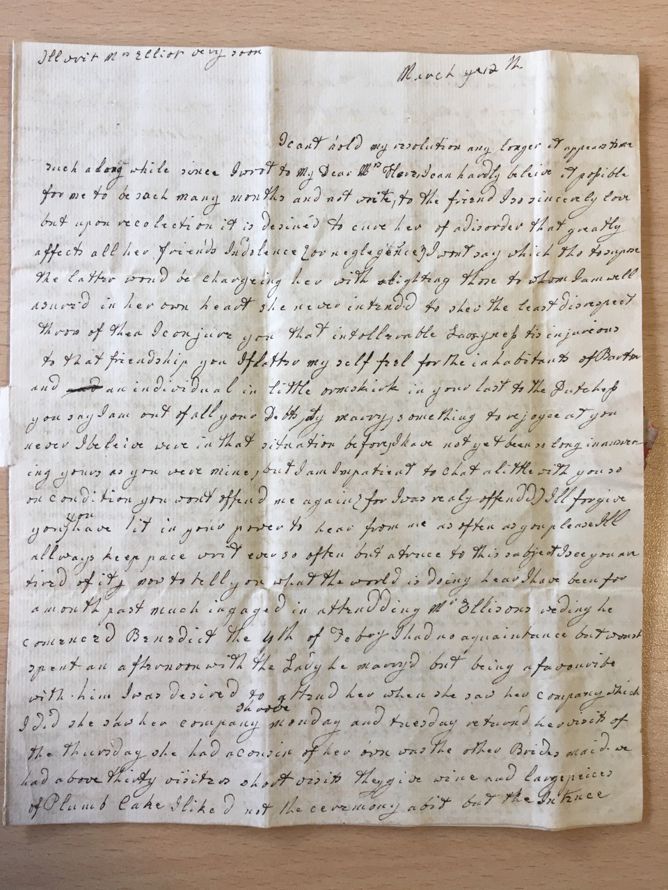 Ill writ Mrs Elliot very soon
March ye 12 th
I cant hold my resolution any longer it appears to me
such a long while since I wrot to my Dear Mrs I can hardly beleive it possible
for me to be sach many months and not write to the friend I so sincerely love
but upon recolection it is desine'd to cure her of a disorder that greatly
affects all her friends Indolence (or neglegence) I wont say which tho to supose
the latter woud be chargeing her with slighting those to whom I am well
asure'd in her own heart she never intend'd to shew the least disrespect
throw of then I conjure you that intollerable Lazyness tis injureous
to that friendship you I flatter my self feel for the inhabitants of
and an individual in little ormskirk in your last to the Dutchess
you say I am out of all your Debts ay marry something to rejoyce at you
never I beleive were in that situation before, I have not yet been so long in answer
ing yours as you were mine, but I am Impatient to chat a little with you so
on condition you wont offend me again (for I was realy offend'd) I'll forgive
you, you have it in your power to hear from me as often as you please Ill
allways keep pace writ ever so often but a truce to this subject I see you are
tired of it, now to tell you what the world is doing hear I have been for
a month past much ingaged in attendding Mr Ellisons weding he
comence'd Benedict the 4th of Febry I had no aquaintance but
spent an afternoon with the Lady he marry'd but being a favourite
with him I was desire'd to attend her when she saw her company which
I did she saw her company monday and tuesday return'd her visits of
the thursday she had a cousin of her own was the other Brides maid. we
had above thirty visiters short visits they give wine and large peices
of Plumb Cake I like'd not the ceremony a bit but the